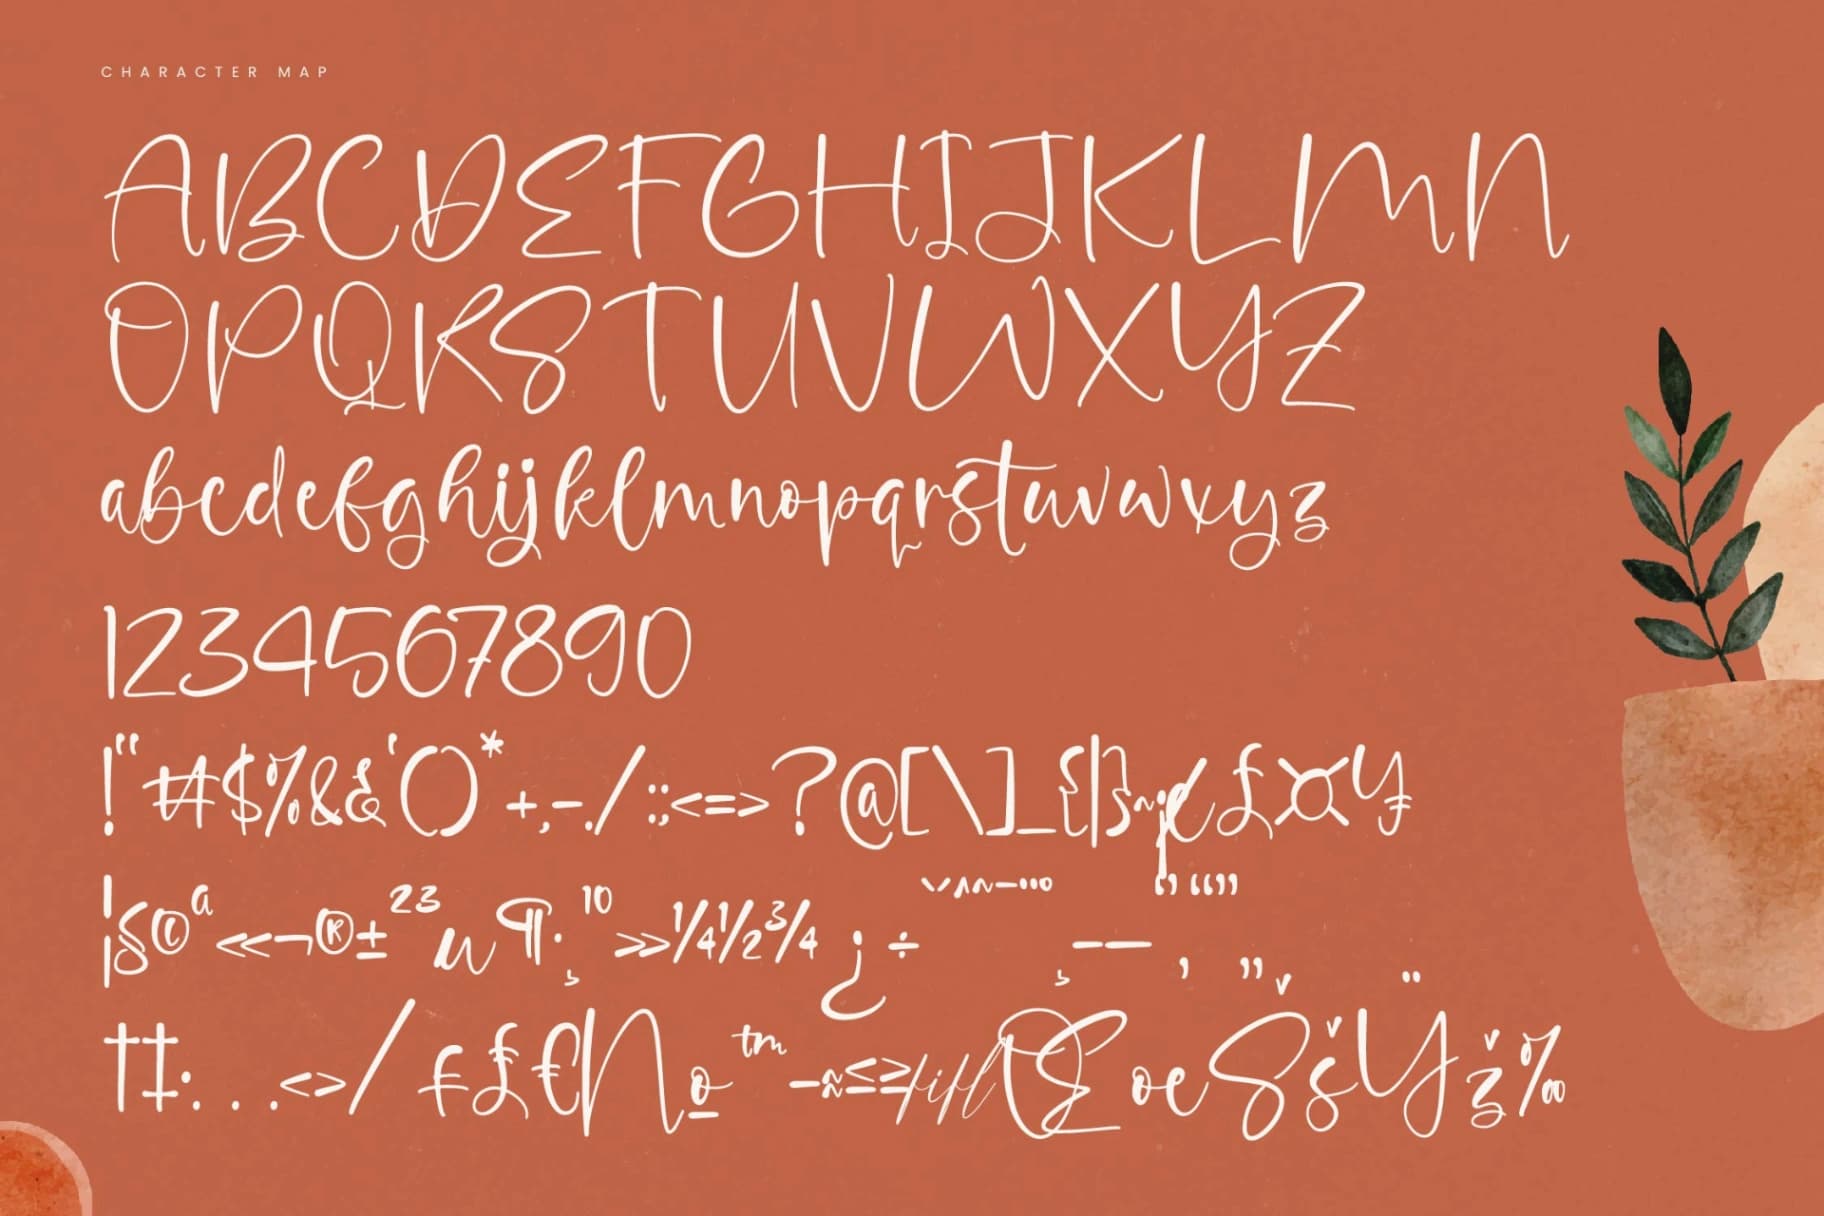 CHARACTER MAP
ABCDEFGHIJKLMN
OPQRSTUVWXYZ
abcdefghijklmnopqrstuvwxyz
1234567890
!"#$%&&'()*+,-./:;<=>?@[\]_{|}~¡¢£¤¥
¦§©ª«¬®±²³µ¶·¸¹⁰»¼½¾¿÷ˇ^~–—‚„‘’“”¨
†‡•...‹›/₣₤€№™−≈≤≥fiflŒœŠšŸž‰